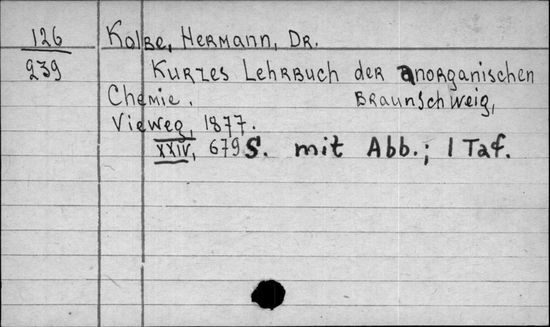 126 Kolbe, Hermann, Dr.
239 Kurzes Lehrbuch der anorganischen
Chemie. Braunschweig,
Vieweg, 1877.
XXIV, 679 S. mit Abb.; 1 Taf.